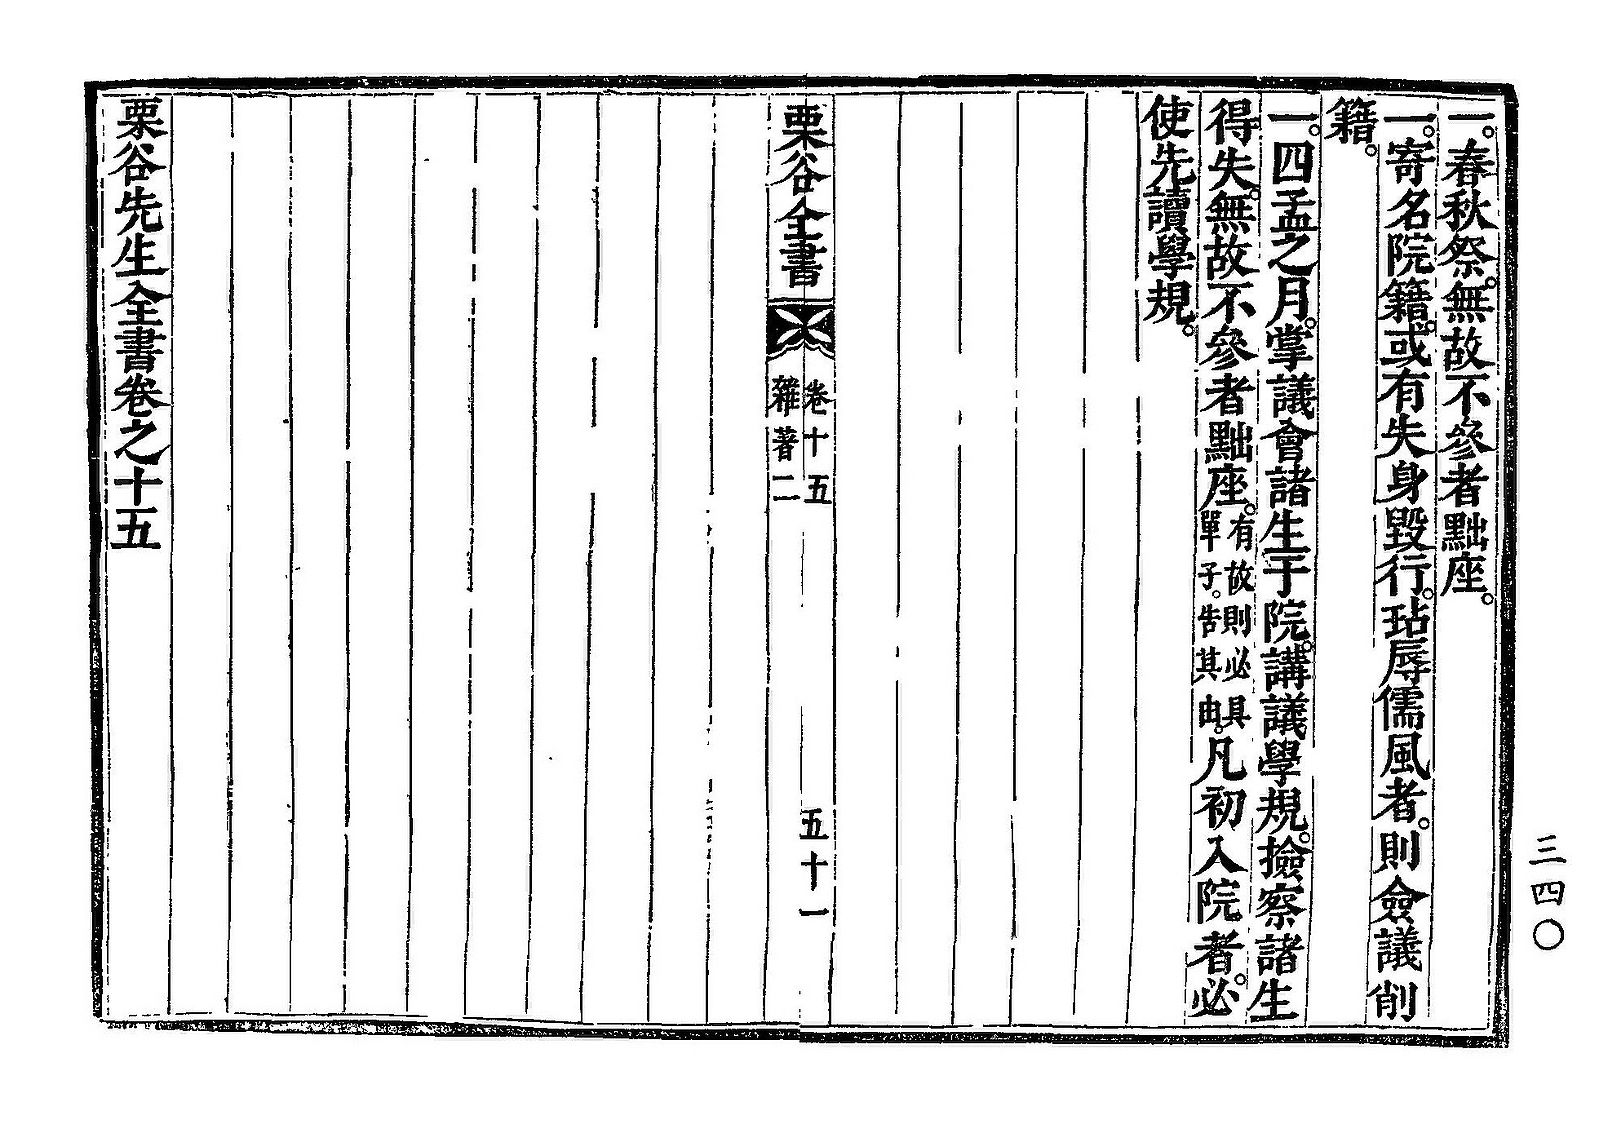 一。春秋祭。無故不參者黜座。
一。寄名院籍。或有失身毀行。玷辱儒風者。則僉議削
籍。
一。四孟之月。掌議會諸生于院。講議學規。撿察諸生
得失。無故不參者黜座。有故則必具單子。告其由。凡初入院者。必
使先讀學規。
栗谷全書
卷十五
雜著二
五十一
栗谷先生全書卷之十五
三四〇